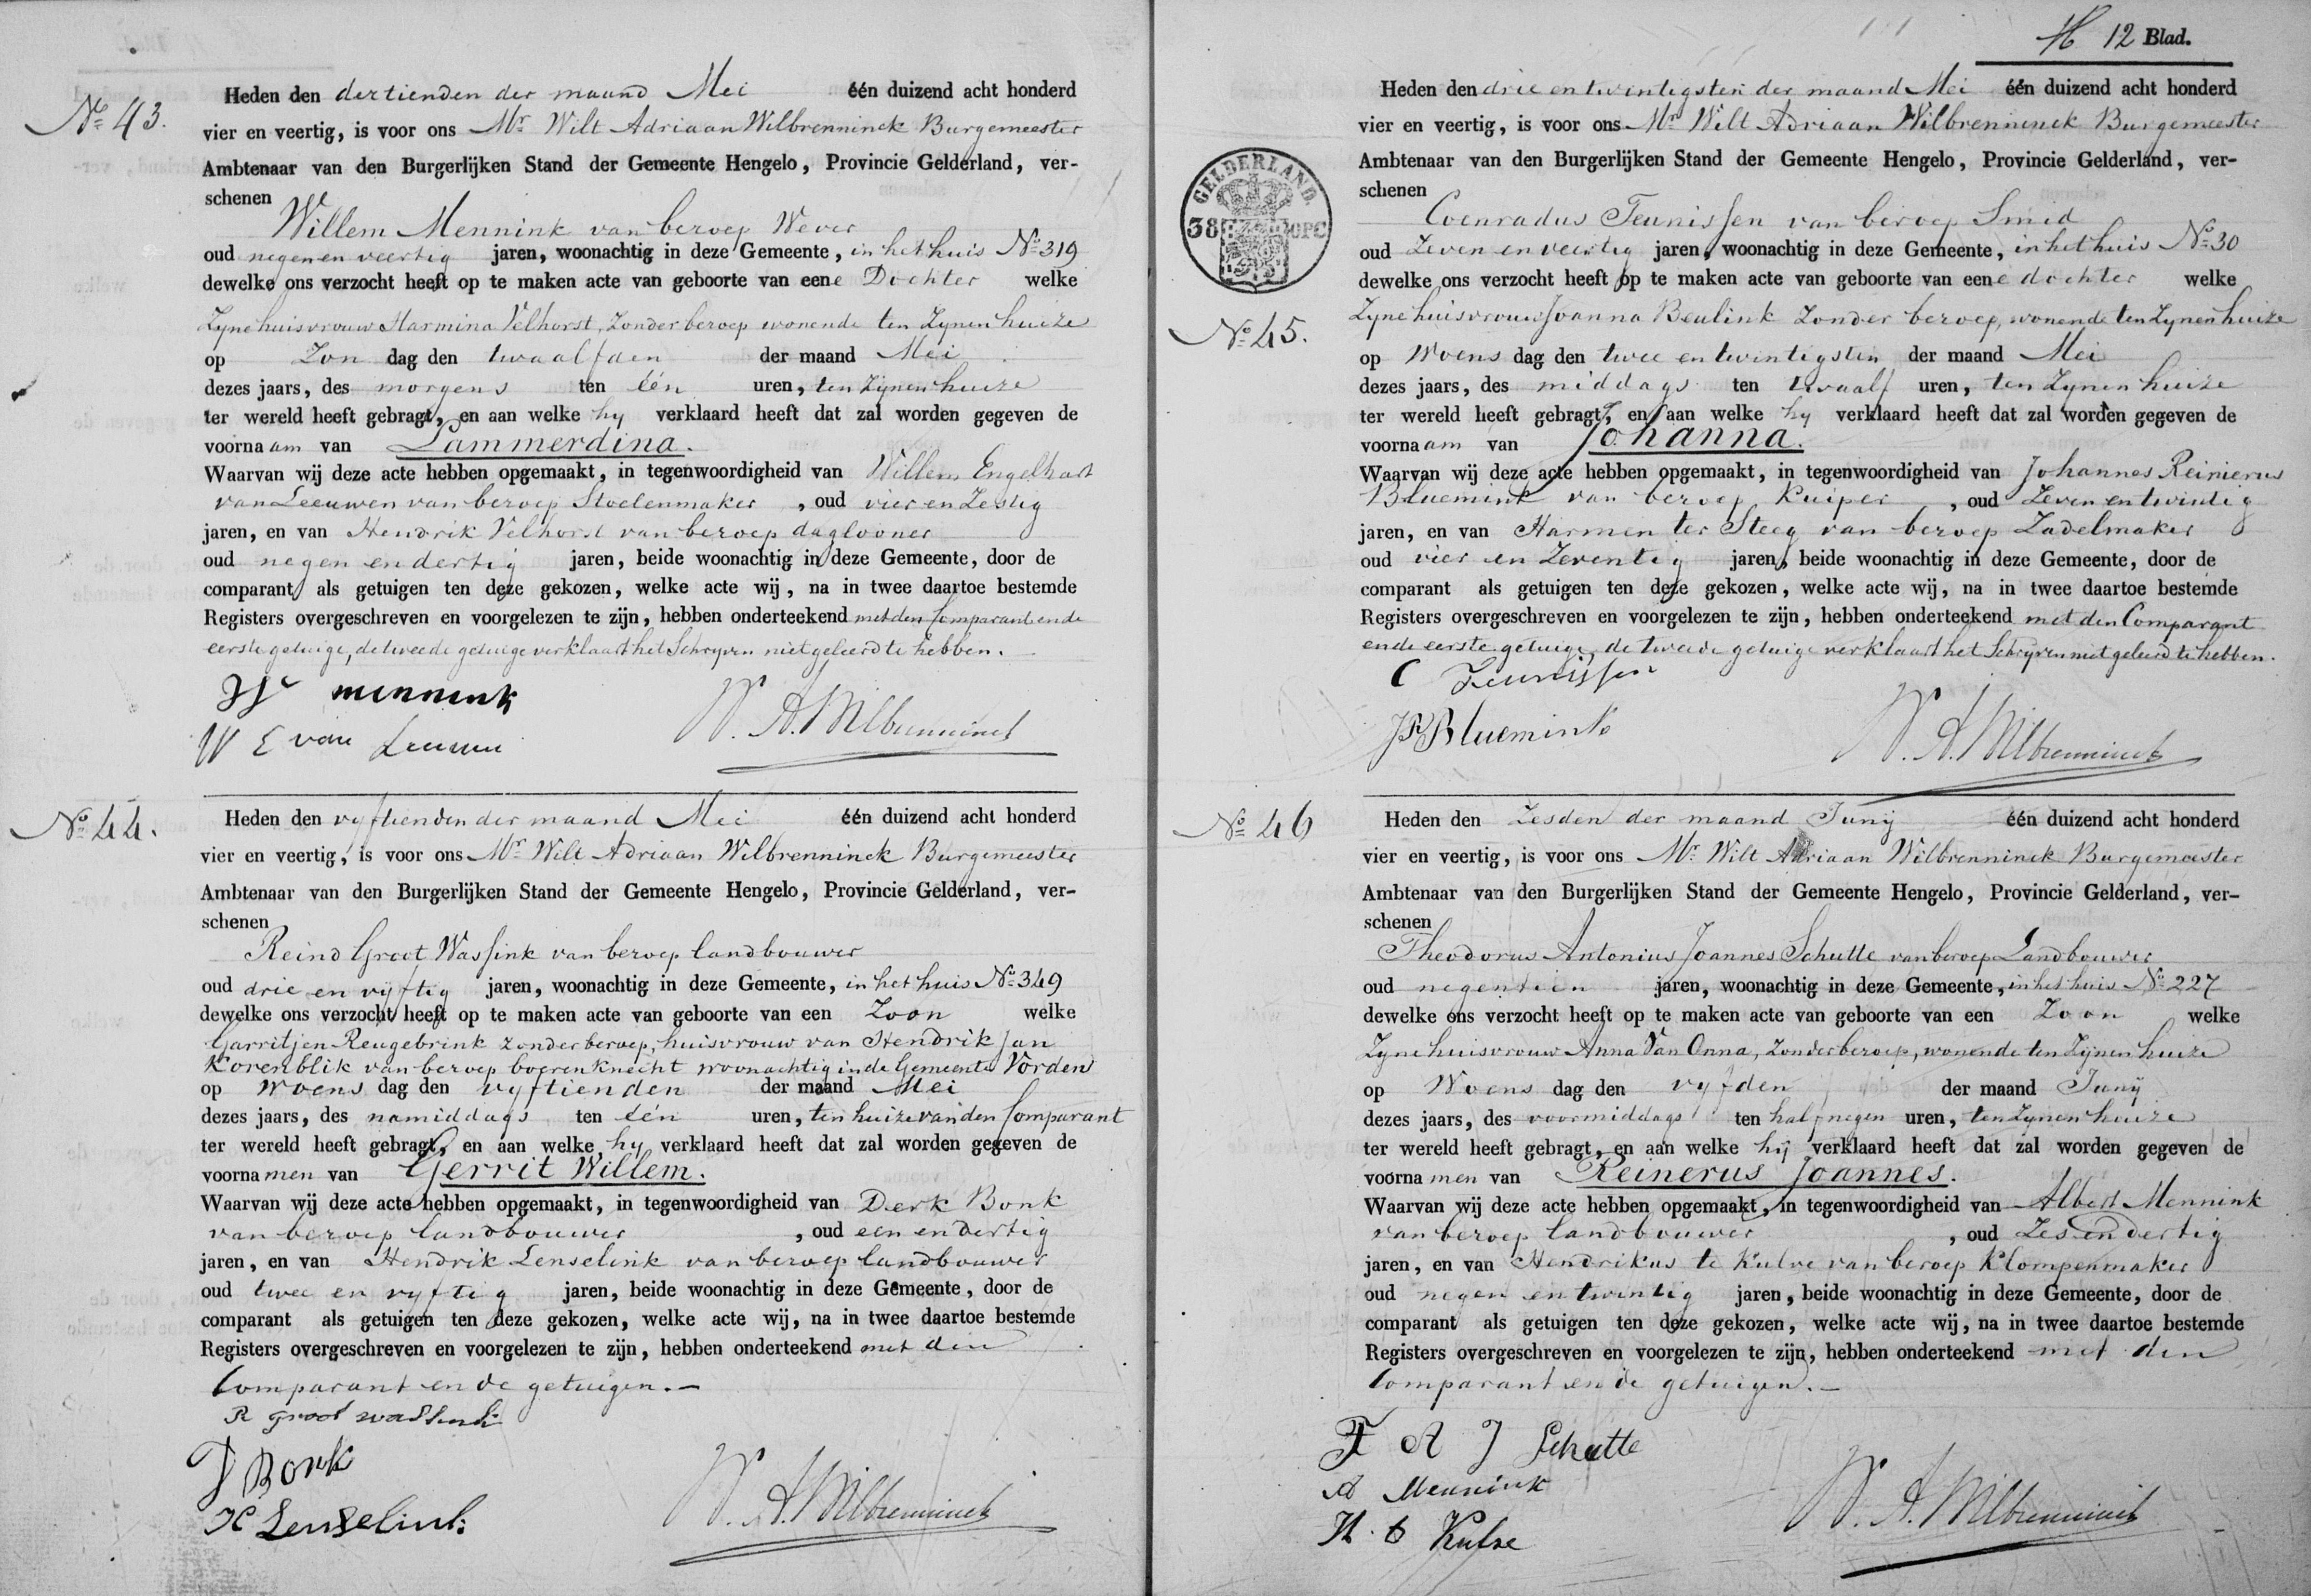 No 43.
Heden den dertienden der maand Mei één duizend acht honderd
vier en veertig, is voor ons Mr Wilt Adriaan Wilbrenninck Burgemeester
Ambtenaar van den Burgerlijken Stand der Gemeente Hengelo, Provincie Gelderland, ver-
schenen
Willem Mennink van beroep Wever
oud negen en veertig jaren, woonachtig in deze Gemeente, in het huis No 319
dewelke ons verzocht heeft op te maken acte van geboorte van eene Dochter welke
Zyne huisvrouw Harmina Velhorst, Zonder beroep wonende ten Zynen huize
op Zon dag den twaalfden der maand Mei
dezes jaars, des morgens ten één uren, ten Zynen huize
ter wereld heeft gebragt, en aan welke hy verklaard heeft dat zal worden gegeven de
voornaam van Lammerdina.
Waarvan wij deze acte hebben opgemaakt, in tegenwoordigheid van Willem Engelhart
van Leeuwen van beroep Stoelenmaker, oud vier en Zestig
jaren, en van Hendrik Velhorst van beroep daglooner
oud negen en dertig jaren, beide woonachtig in deze Gemeente, door de
comparant als getuigen ten deze gekozen, welke acte wij, na in twee daartoe bestemde
Registers overgeschreven en voorgelezen te zijn, hebben onderteekend met den Comparant en de
eerste getuige, de tweede getuige verklaart het Schryven niet geleerd te hebben.
W mennink
W E van Leeuwen
W. A. Wilbrenninck
No 44.
Heden den vyftienden der maand Mei één duizend acht honderd
vier en veertig, is voor ons Mr Wilt Adriaan Wilbrenninck Burgemeester
Ambtenaar van den Burgerlijken Stand der Gemeente Hengelo, Provincie Gelderland, ver-
schenen
Reind Groot Wassink van beroep landbouwer
oud drie en vyftig jaren, woonachtig in deze Gemeente, in het huis No 349
dewelke ons verzocht heeft op te maken acte van geboorte van een Zoon welke
Garritjen Reugebrink zonder beroep, huisvrouw van Hendrik Jan
Korenblik van beroep boerenknecht woonachtig in de Gemeente Vorden
op Woens dag den vyftienden der maand Mei
dezes jaars, des namiddags ten één uren, ten huize van den Comparant
ter wereld heeft gebragt, en aan welke hy verklaard heeft dat zal worden gegeven de
voornamen van Gerrit Willem.
Waarvan wij deze acte hebben opgemaakt, in tegenwoordigheid van Derk Bonk
van beroep landbouwer, oud een en dertig
jaren, en van Hendrik Lenselink van beroep landbouwer
oud twee en vyftig jaren, beide woonachtig in deze Gemeente, door de
comparant als getuigen ten deze gekozen, welke acte wij, na in twee daartoe bestemde
Registers overgeschreven en voorgelezen te zijn, hebben onderteekend met den
Comparant en de getuigen.
R groot wassink
D Bonk
H Lenselink
W. A. Wilbrenninck
12 Blad.
Heden den drie en twintigsten der maand Mei één duizend acht honderd
vier en veertig, is voor ons Mr Wilt Adriaan Wilbrenninck Burgemeester
Ambtenaar van den Burgerlijken Stand der Gemeente Hengelo, Provincie Gelderland, ver-
schenen
GELDERLAND.
38
OPC
No 45.
Coenradus Teunissen van beroep Smid
oud Zeven en veertig jaren, woonachtig in deze Gemeente, in het huis No 30
dewelke ons verzocht heeft op te maken acte van geboorte van eene dochter welke
Zyne huisvrouw Joanna Beulink Zonder beroep, wonende ten Zynen huize
op Woens dag den twee en twintigsten der maand Mei
dezes jaars, des middags ten twaalf uren, ten Zynen huize
ter wereld heeft gebragt, en aan welke hy verklaard heeft dat zal worden gegeven de
voornaam van Johanna.
Waarvan wij deze acte hebben opgemaakt, in tegenwoordigheid van Johannes Reinierus
Bluemink van beroep Kuiper, oud Zeven en twintig
jaren, en van Harmen ter Steeg van beroep Zadelmaker
oud vier en Zeventig jaren, beide woonachtig in deze Gemeente, door de
comparant als getuigen ten deze gekozen, welke acte wij, na in twee daartoe bestemde
Registers overgeschreven en voorgelezen te zijn, hebben onderteekend met den Comparant
en de eerste getuige, de tweede getuige verklaart het Schryven niet geleerd te hebben.
C Teunissen
J R Bluemink
W. A. Wilbrenninck
No 46
Heden den Zesden der maand Juny één duizend acht honderd
vier en veertig, is voor ons Mr Wilt Adriaan Wilbrenninck Burgemeester
Ambtenaar van den Burgerlijken Stand der Gemeente Hengelo, Provincie Gelderland, ver-
schenen
Theodorus Antonius Joannes Schutte van beroep Landbouwer
oud negentien jaren, woonachtig in deze Gemeente, in het huis No 227
dewelke ons verzocht heeft op te maken acte van geboorte van een Zoon welke
Zyne huisvrouw Anna Van Onna, Zonder beroep, wonende ten Zijnen huize
op Woens dag den vyfden der maand Juny
dezes jaars, des voormiddags ten half negen uren, ten Zynen huize
ter wereld heeft gebragt, en aan welke hij verklaard heeft dat zal worden gegeven de
voornamen van Reinerus Joannes.
Waarvan wij deze acte hebben opgemaakt, in tegenwoordigheid van Albert Mennink
van beroep landbouwer, oud Zes en dertig
jaren, en van Hendrikus te Kulve van beroep Klompenmaker
oud negen en twintig jaren, beide woonachtig in deze Gemeente, door de
comparant als getuigen ten deze gekozen, welke acte wij, na in twee daartoe bestemde
Registers overgeschreven en voorgelezen te zijn, hebben onderteekend met den
Comparant en de getuigen.
T A J Schutte
A Mennink
H. t Kulve
W. A. Wilbrenninck